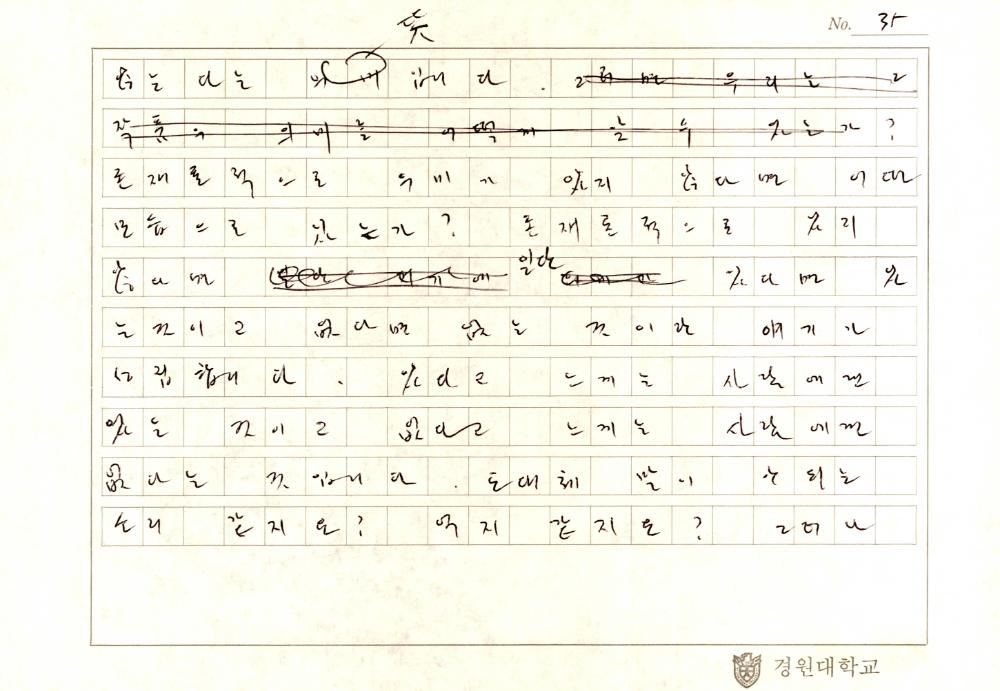 뜻
No. 35
않는 다는 의미 입니다. 그러면 우리는 그
작품의 의미를 어떻게 알 수 있는가?
존재론적으로 의미가 있지 않다면 어떤
모습으로 있는가? 존재론적으로 있지
않다면 일단 있다면 있
는 것이고 없다면 없는 것이란 얘기가
성립합니다. 있다고 느끼는 사람에겐
있는 것이고 없다고 느끼는 사람에겐
없다는 것입니다. 도대체 말이 안 되는
소리 같지요? 억지 같지요? 그러나
경원대학교